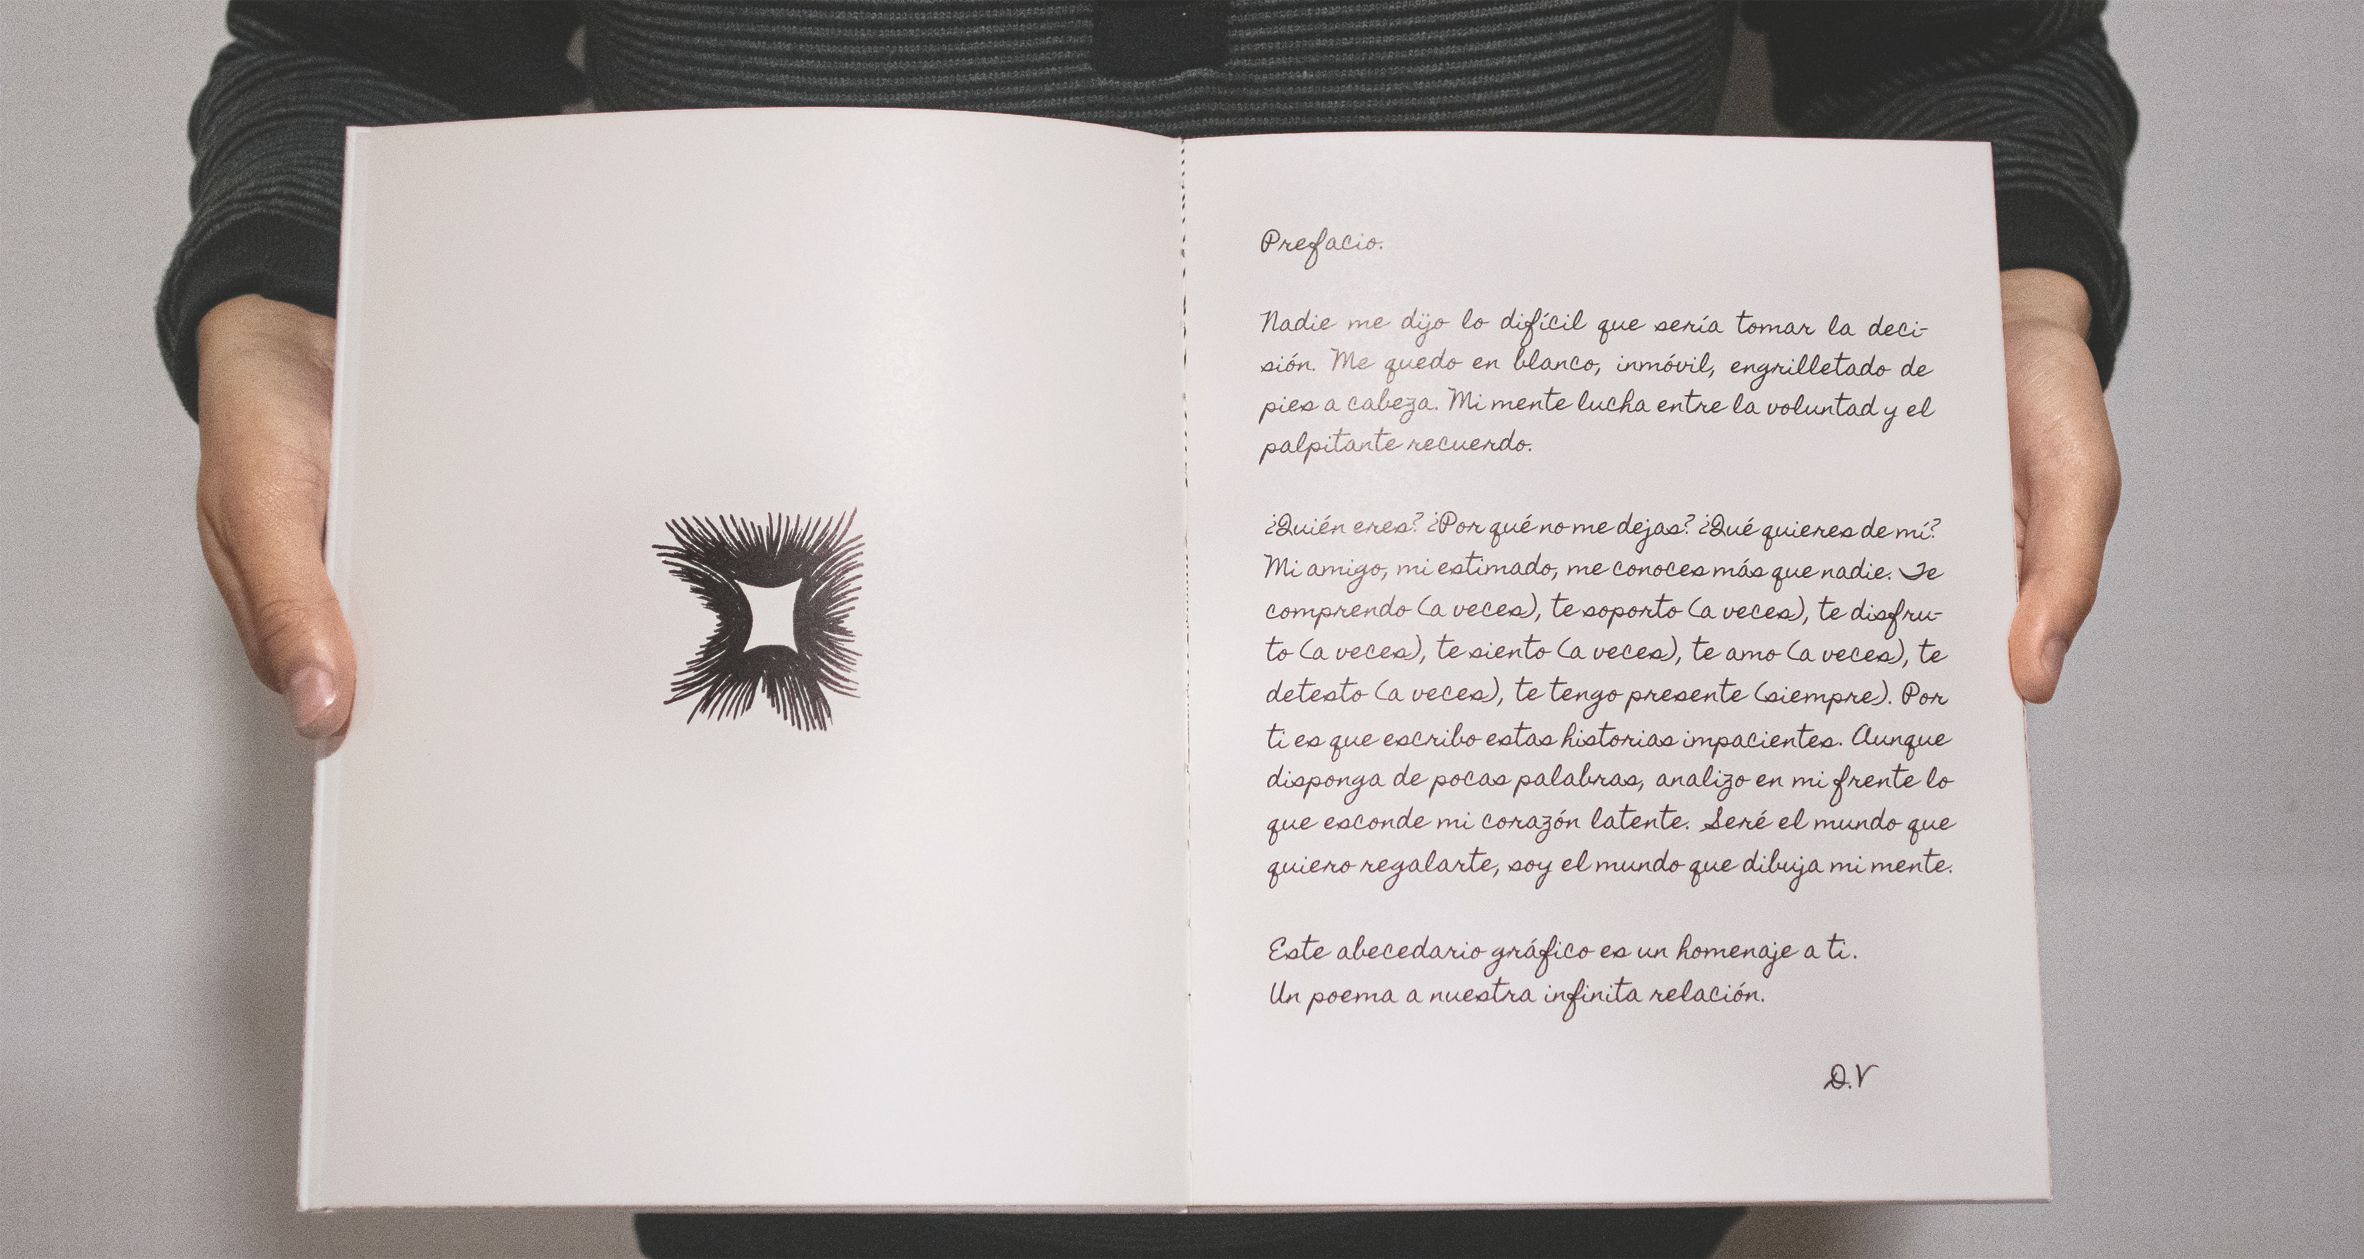 Prefacio.
Nadie me dijo lo difícil que sería tomar la deci-
sión. Me quedo en blanco, inmóvil, engrilletado de
pies a cabeza. Mi mente lucha entre la voluntad y el
palpitante recuerdo.
¿Quién eres? ¿Por qué no me dejas? ¿Qué quieres de mí?
Mi amigo, mi estimado, me conoces más que nadie. Te
comprendo (a veces), te soporto (a veces), te disfru-
to (a veces), te siento (a veces), te amo (a veces), te
detesto (a veces), te tengo presente (siempre). Por
ti es que escribo estas historias impacientes. Aunque
disponga de pocas palabras, analizo en mi frente lo
que esconde mi corazón latente. Seré el mundo que
quiero regalarte, soy el mundo que dibuja mi mente.
Este abecedario gráfico es un homenaje a ti.
Un poema a nuestra infinita relación.
D.V